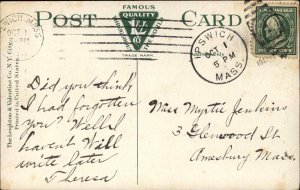 FAMOUS
POST CARD
QUALITY
TRADE MARK
IPSWICH
OCT 1
5 PM
MASS.
The Leighton & Valentine Co., N.Y. City.
Printed in United States.
Did you think
I had forgotten
you? Well I
havent Will
write later
Theresa
Miss Myrtie Jenkins
3 Glenwood St
Amesbury Mass.